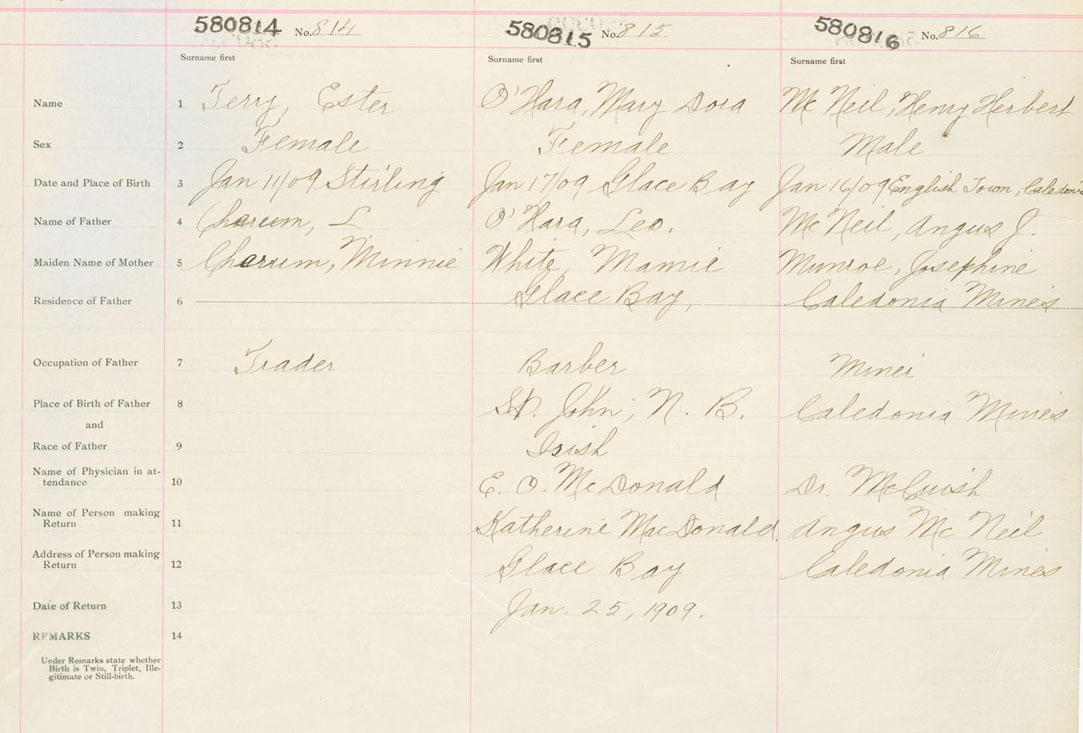 580814 No. 814 580815 No. 815 580816 No. 816
Surname first Surname first Surname first
Name 1 Terry, Ester O'Hara, Mary Dora McNeil, Henry Herbert
Sex 2 Female Female Male
Date and Place of Birth 3 Jan 11/09 Stirling Jan 17/09 Glace Bay Jan 16/09 English Town, Caledonia
Name of Father 4 L O'Hara, Leo. McNeil, Angus J.
Maiden Name of Mother 5 Minnie White, Mamie Munroe, Josephine
Residence of Father 6 Glace Bay, Caledonia Mines
Occupation of Father 7 Trader Barber Miner
Place of Birth of Father 8 St. John, N. B. Caledonia Mines
and
Race of Father 9 Irish
Name of Physician in at-
tendance 10 E. O. McDonald Dr. McCuish
Name of Person making
Return 11 Katherine MacDonald. Angus McNeil
Address of Person making
Return 12 Glace Bay Caledonia Mines
Date of Return 13 Jan. 25, 1909.
REMARKS 14
Under Remarks state whether
Birth is Twin, Triplet, Ille-
gitimate or Still-birth.